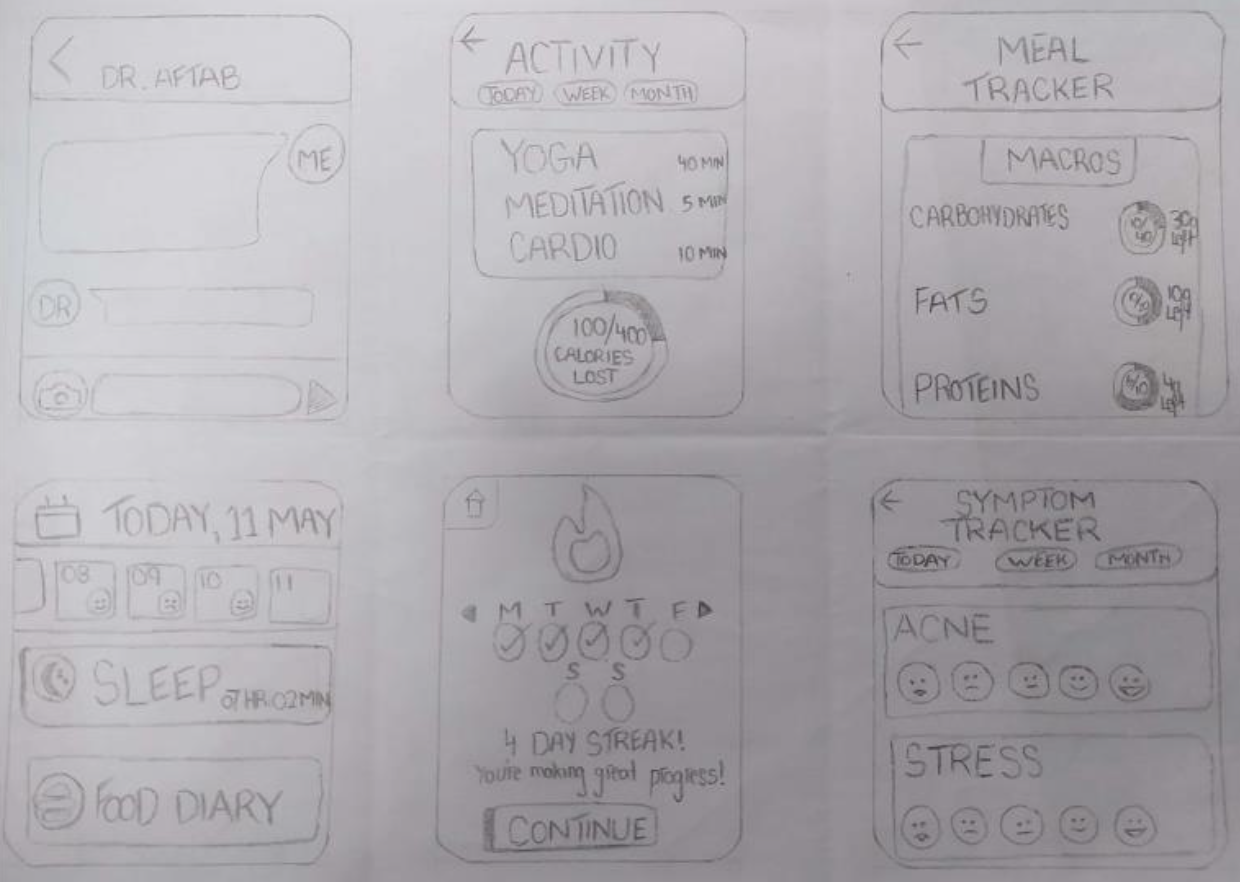 DR. AFTAB
ME
DR
ACTIVITY
TODAY WEEK MONTH
YOGA 40 MIN
MEDITATION 5 MIN
CARDIO 10 MIN
100/400
CALORIES
LOST
MEAL
TRACKER
MACROS
CARBOHYDRATES 30g left
FATS 10g left
PROTEINS 4g left
TODAY, 11 MAY
08 09 10 11
SLEEP 07 HR:02 MIN
FOOD DIARY
M T W T F
S S
4 DAY STREAK!
You're making great progress!
CONTINUE
SYMPTOM
TRACKER
TODAY WEEK MONTH
ACNE
STRESS